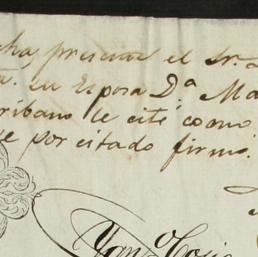 cha presente el Sr. D
a. su Esposa D.a Ma
ribano le cité como
e por citado firmo.